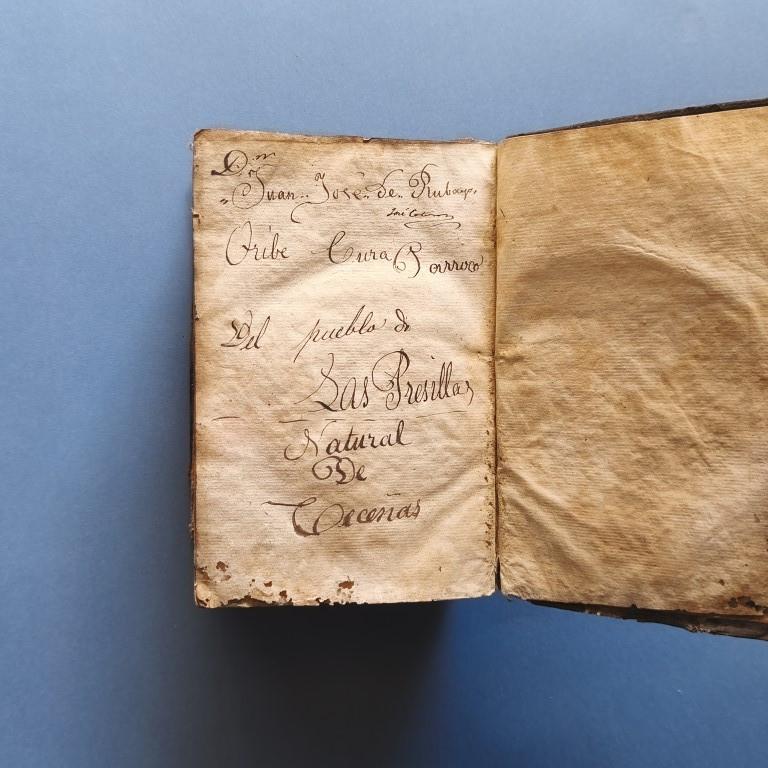 Dn
Juan José de Rubayo
Oribe Cura Parroco
Del pueblo de
Las Presillas
Natural
De
Teceñas